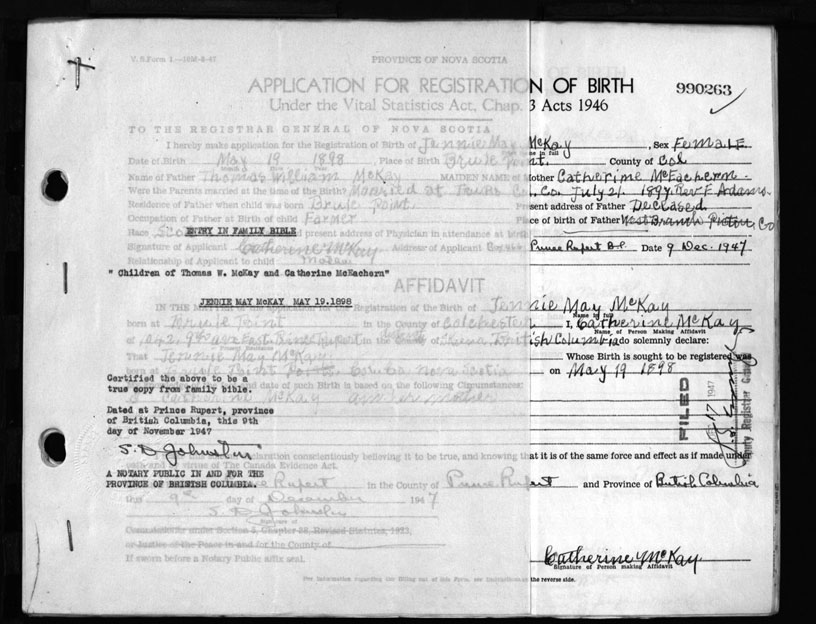 V. S. Form 1
PROVINCE OF NOVA SCOTIA
APPLICATION FOR REGISTRATION OF BIRTH
990263
Under the Vital Statistics Act, Chap. 3 Acts 1946
TO THE REGISTRAR GENERAL OF NOVA SCOTIA
I hereby make application for the Registration of Birth of Jennie May McKay, Sex FemaLE
Date of Birth May 19 1898, Place of Birth Brule Point. County of Col
Name of Father Thomas William McKay MAIDEN NAME of Mother Catherine McEachern
Were the Parents married at the time of Birth? Married at Col. Co. July 21. 1897 Rev F Adams.
Residence of Father when child was born Brule Point Present address of Father Deceased
Occupation of Father at Birth of child Farmer Place of birth of Father West Branch Pictou, Co
Race present address of Physician in attendance at birth
ENTRY IN FAMILY BIBLE
Signature of Applicant Catherine McKay Address of Applicant Prince Rupert B.C. Date 9 Dec. 1947
Relationship of Applicant to child Mother
" Children of Thomas W. McKay and Catherine McEachern"
AFFIDAVIT
JENNIE MAY McKAY MAY 19.1898
IN THE of the application for the Registration of the Birth of Jennie May McKay
Name in full
born at Brule Point in the County of Colchester I, Catherine McKay
Name of Person Making Affidavit
of Prince Rupert in the British Columbia do solemnly declare:
That Jennie May McKay Whose Birth is sought to be registered was
born at Brule Point Nova Scotia on May 19 1898
and date of such Birth is based on the following Circumstances:
Catherine McKay am her mother
FILED
1947
Certified the above to be a
true copy from family bible.
Dated at Prince Rupert, province
of British Columbia, this 9th
day of November 1947
S. D. Johnston
declaration conscientiously believing it to be true, and knowing that it is of the same force and effect as if made under
oath and by virtue of The Canada Evidence Act.
A NOTARY PUBLIC IN AND FOR THE
PROVINCE OF BRISTISH COLUMBIA.
Rupert in the County of Prince Rupert and Province of British Columbia
this 9th day of December 1947
S. D. Johnston
Commissioner under Section 5, Chapter 38, Revised Statutes, 1923,
or Justice of the Peace in and for the County of
If sworn before a Notary Public affix seal.
Catherine McKay
Signature of Person making Affidavit
For information regarding the filling out of this Form, see instructions on the reverse side.